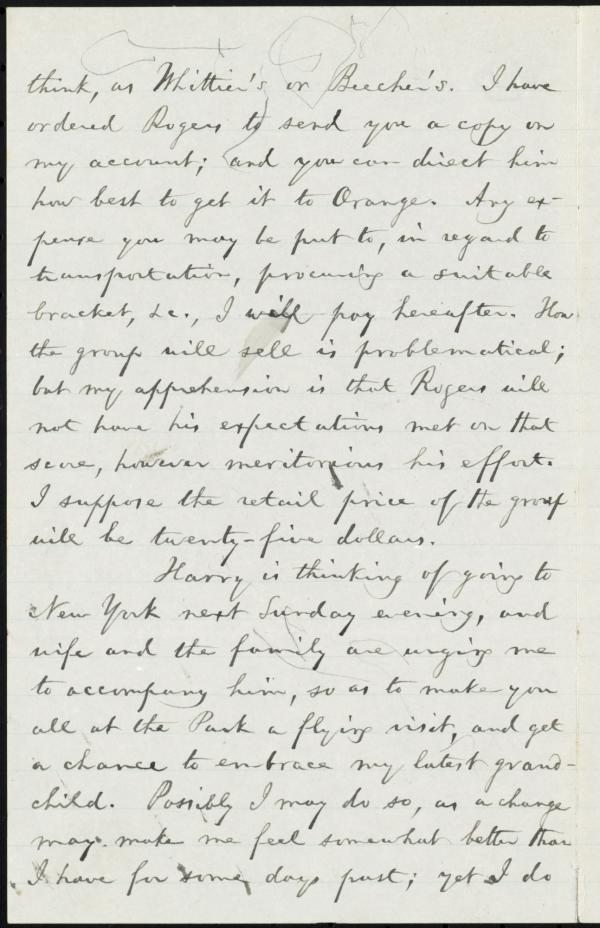 think, as Whittier's or Beecher's. I have
ordered Rogers to send you a copy on
my account; and you can direct him
how best to get it to Orange. Any ex-
pense you may be put to, in regard to
transportation, procuring a suitable
bracket, &c., I will pay hereafter. How
the group will sell is problematical;
but my apprehension is that Rogers will
not have his expectations met on that
score, however meritorious his effort.
I suppose the retail price of the group
will be twenty-five dollars.
Harry is thinking of going to
New York next Sunday evening, and
wife and the family are urging me
to accompany him, so as to make you
all at the Park a flying visit, and get
a chance to embrace my latest grand-
child. Possibly I may do so, as a change
may make me feel somewhat better than
I have for some days past; yet I do